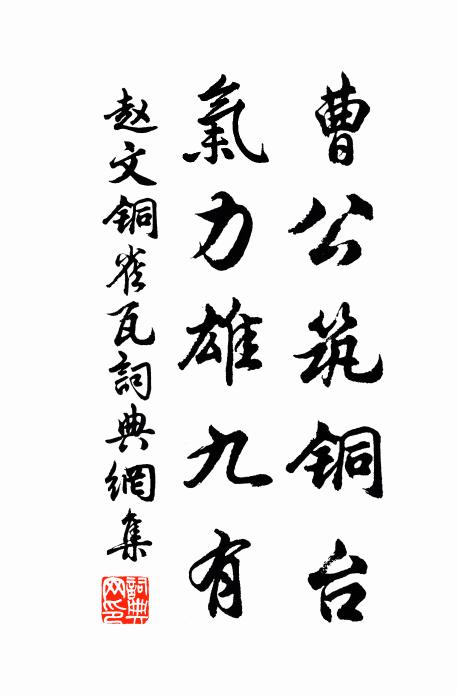 曹公筑铜台
氣力雄九有
赵文铜雀瓦詞典網集
詞典网印